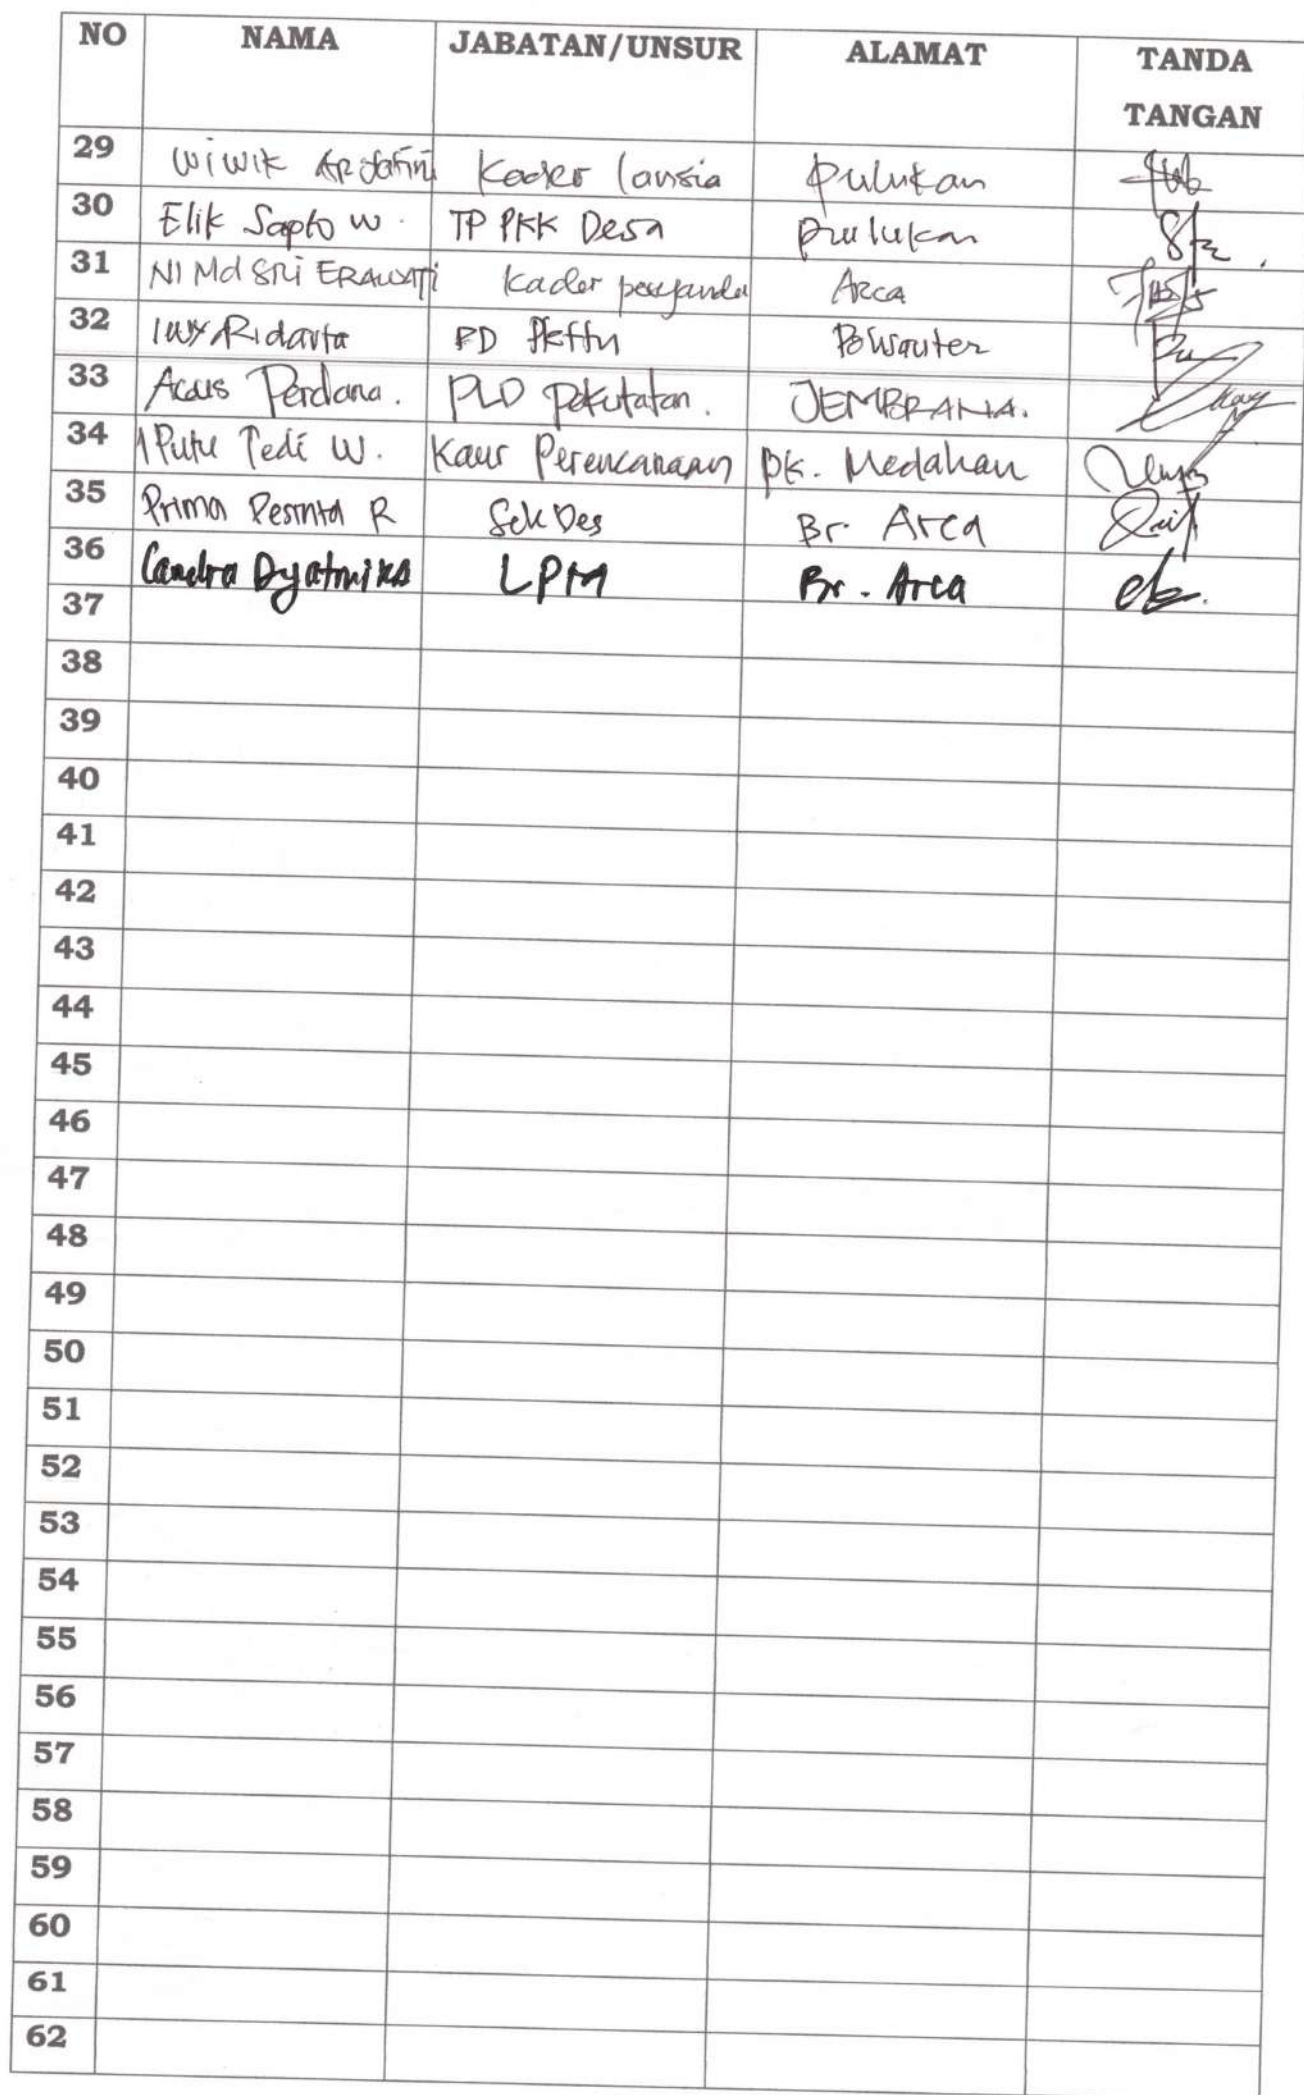 NO NAMA JABATAN/UNSUR ALAMAT TANDA TANGAN
29 Wiwik Ardatini Kader lansia Pulukan
30 Elik Sapto W. TP PKK Desa Pulukan
31 NI Md SRi ERAWATi Kader posyandu Arca
32 I WY Ridarta
33 Agus Perdana. PLD Pekutatan. JEMBRANA.
34 I Putu Tedi W. Kaur Perencanaan BK. Medahan
35 Prima Pesinta R SekDes Br. Arca
36 Candra Dyatmika LPM Br. Arca
37
38
39
40
41
42
43
44
45
46
47
48
49
50
51
52
53
54
55
56
57
58
59
60
61
62